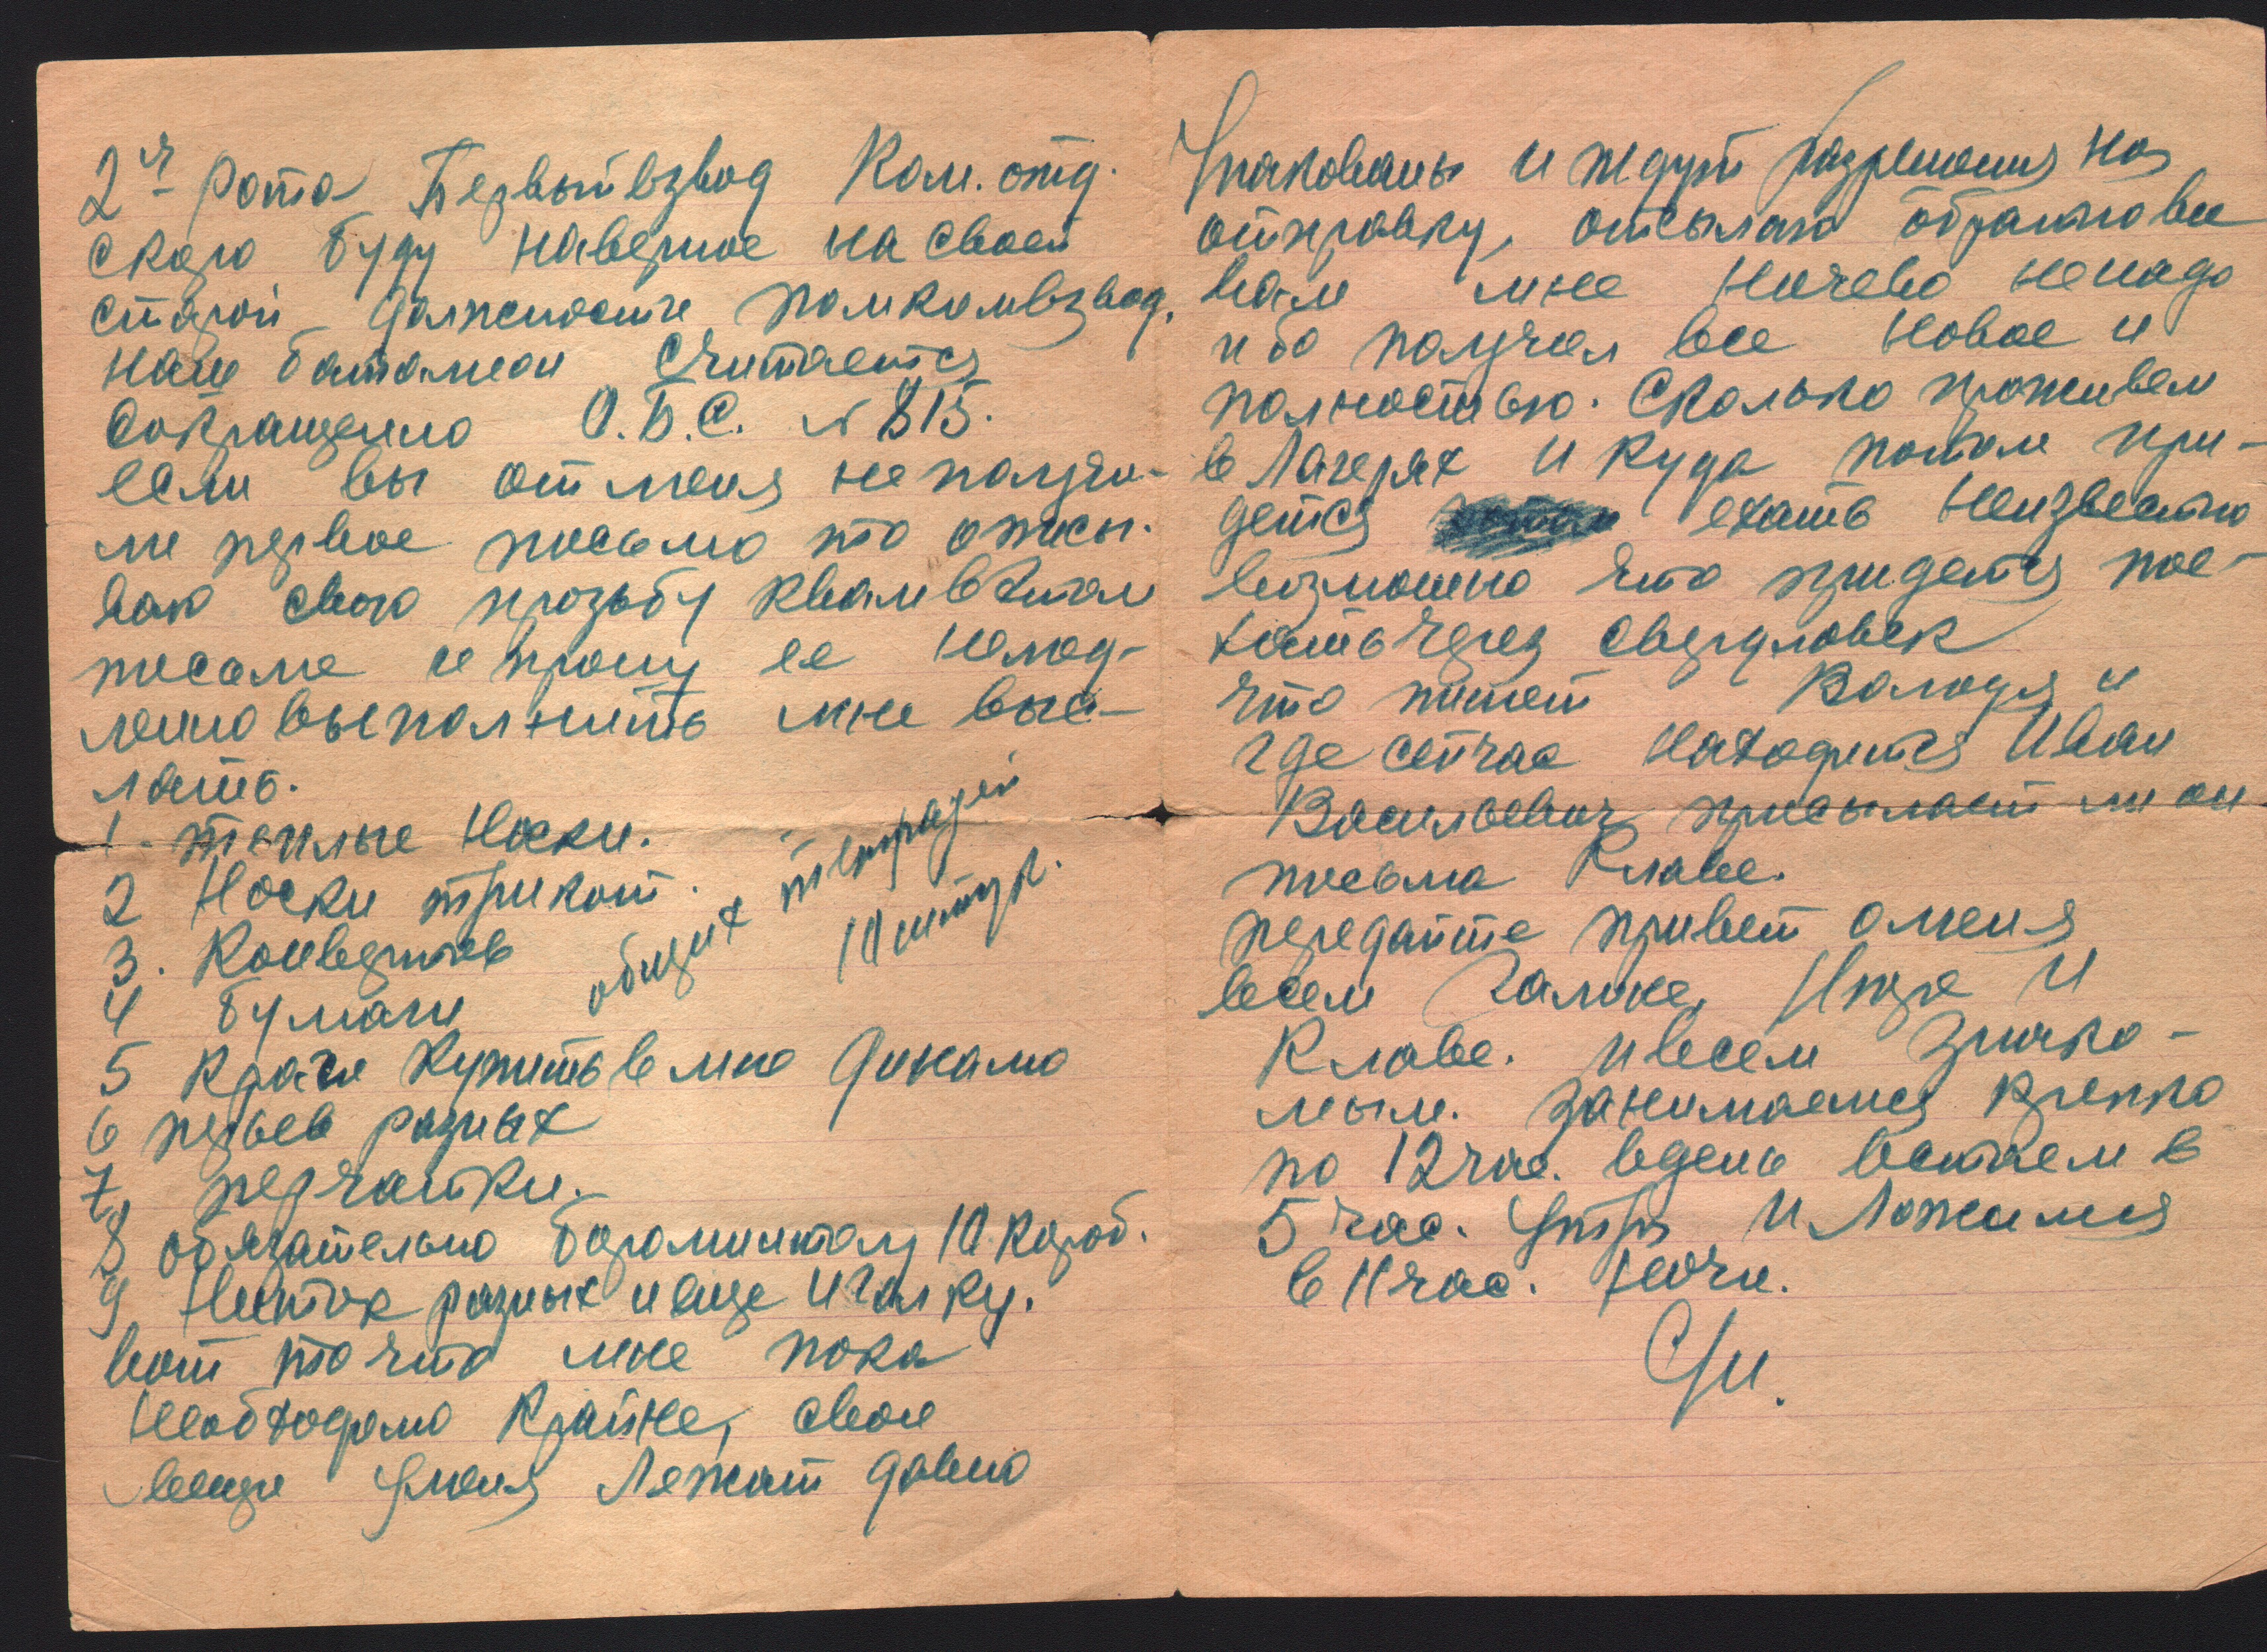 2я рота Первый взвод Ком. отд.
скоро буду наверное на своей
старой должности помкомвзвод.
наш баталион считается
сокращенно О.Б.С. № 815.
если вы от меня не получи-
ли первое письмо то описы-
ваю свою прозьбу к вам в этом
письме и прошу ее немед-
лено выполнить мне выс-
лать.
1. теплые носки.
2 Носки трикот.
3. Конвертов
4 бумаги общих тетрадей
10 штук.
5 краги купить в маг Динамо
6 перьев разных
7. перчатки.
8 обязательно бороментолу 10 короб.
9 Ниток разных и еще иголку.
вот то что мне пока
необходимо крайне, свои
вещи у меня лежат давно
упакованы и ждут разрешения на
отправку, отсылаю обратно все
вам мне ничево не надо
ибо получил все новое и
полностью. Сколько проживем
в лагерях и куда потом при-
дется ехать неизвестно
возможно что придется пое-
хать через Свердловск
что пишет Володя и
где сейчас находится Иван
Васильевич присылает ли он
письма Клаве.
передайте привет от меня
всем Гальке, Игоре и
Клаве. и всем знако-
мым. занимаемся крепко
по 12 час. в день встаем в
5 час. утра и ложимся
в 11 час. ночи.